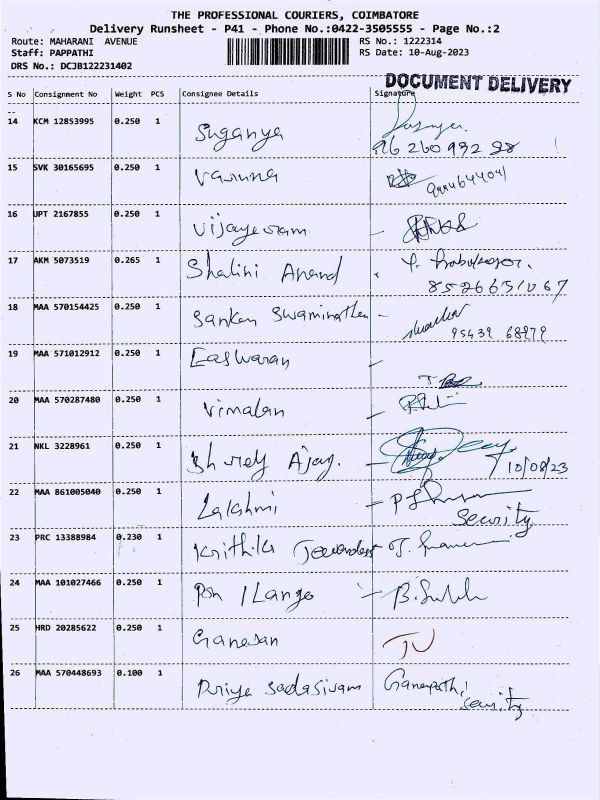 THE PROFESSIONAL COURIERS, COIMBATORE
Delivery Runsheet - P41 - Phone No.:0422-3505555 - Page No.:2
Route: MAHARANI AVENUE RS No.: 1222314
Staff: PAPPATHI RS Date: 10-Aug-2023
DRS No.: DCJB122231402
DOCUMENT DELIVERY
S No Consignment No Weight PCS Consignee Details Signature
14 KCM 12853995 0.250 1 Suganya
96 260 992 98
15 SVK 30165695 0.250 1 Varuna
16 JPT 2167855 0.250 1 Vijayeram
17 AKM 5073519 0.265 1 Shalini Anand
8526651067
18 MAA 570154425 0.250 1 Sankar Swaminathan
95439 68979
19 MAA 571012912 0.250 1 Easwaran
20 MAA 570287480 0.250 1 Vimalan
21 NKL 3228961 0.250 1 Ajay.
10/08/23
22 MAA 861005040 0.250 1 Lakshmi
Security
23 PRC 13388984 0.230 1 Krithika
24 MAA 101027466 0.250 1 Pon Ilango
25 HRD 20285622 0.250 1 Ganesan
26 MAA 570448693 0.100 1 Priya Sadasivam Ganapathi
Security